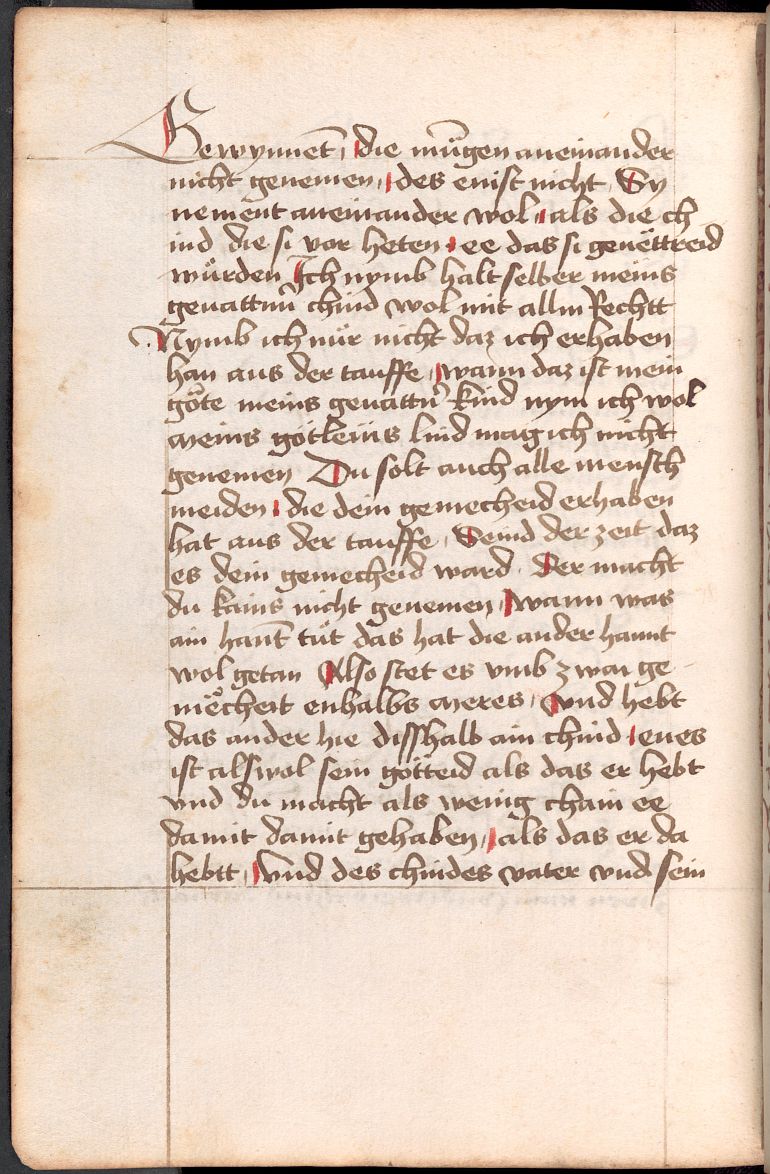 Gewynnent, die mu̇gen aneinander
nicht genemen, des enist nicht Sy
nement aneinander wol, als die ch
ind die si vor heten, ee das si geuëttreid
würden Ich nymb halt selber meins
geuattern chind wol mit allm Rechtt
Nymb ich nür nicht daz ich erhaben
han aus der tauffe, wann daz ist mein
göte meins geuattern kind nym ich wol
meins götleins kind mag ich nicht
genemen Du solt auch alle mensch
meiden, die dein gemecheid erhaben
hat aus der tauffe, Seind der zeit daz
es dein gemecheid ward, Der macht
du kains nicht genemen, wann was
ain hant tüt das hat die ander hannt
wol getan Also stet es vmb zway ge
mëcheit enhalbs meres, vnd hebt
das ander hie disshalb ain chind, enes
ist alswol sein götteid als das er hebt
vnd du macht als wenig chain ee
damit damit gehaben, als das er da
hebtt, vnd des chindes vater vnd sein